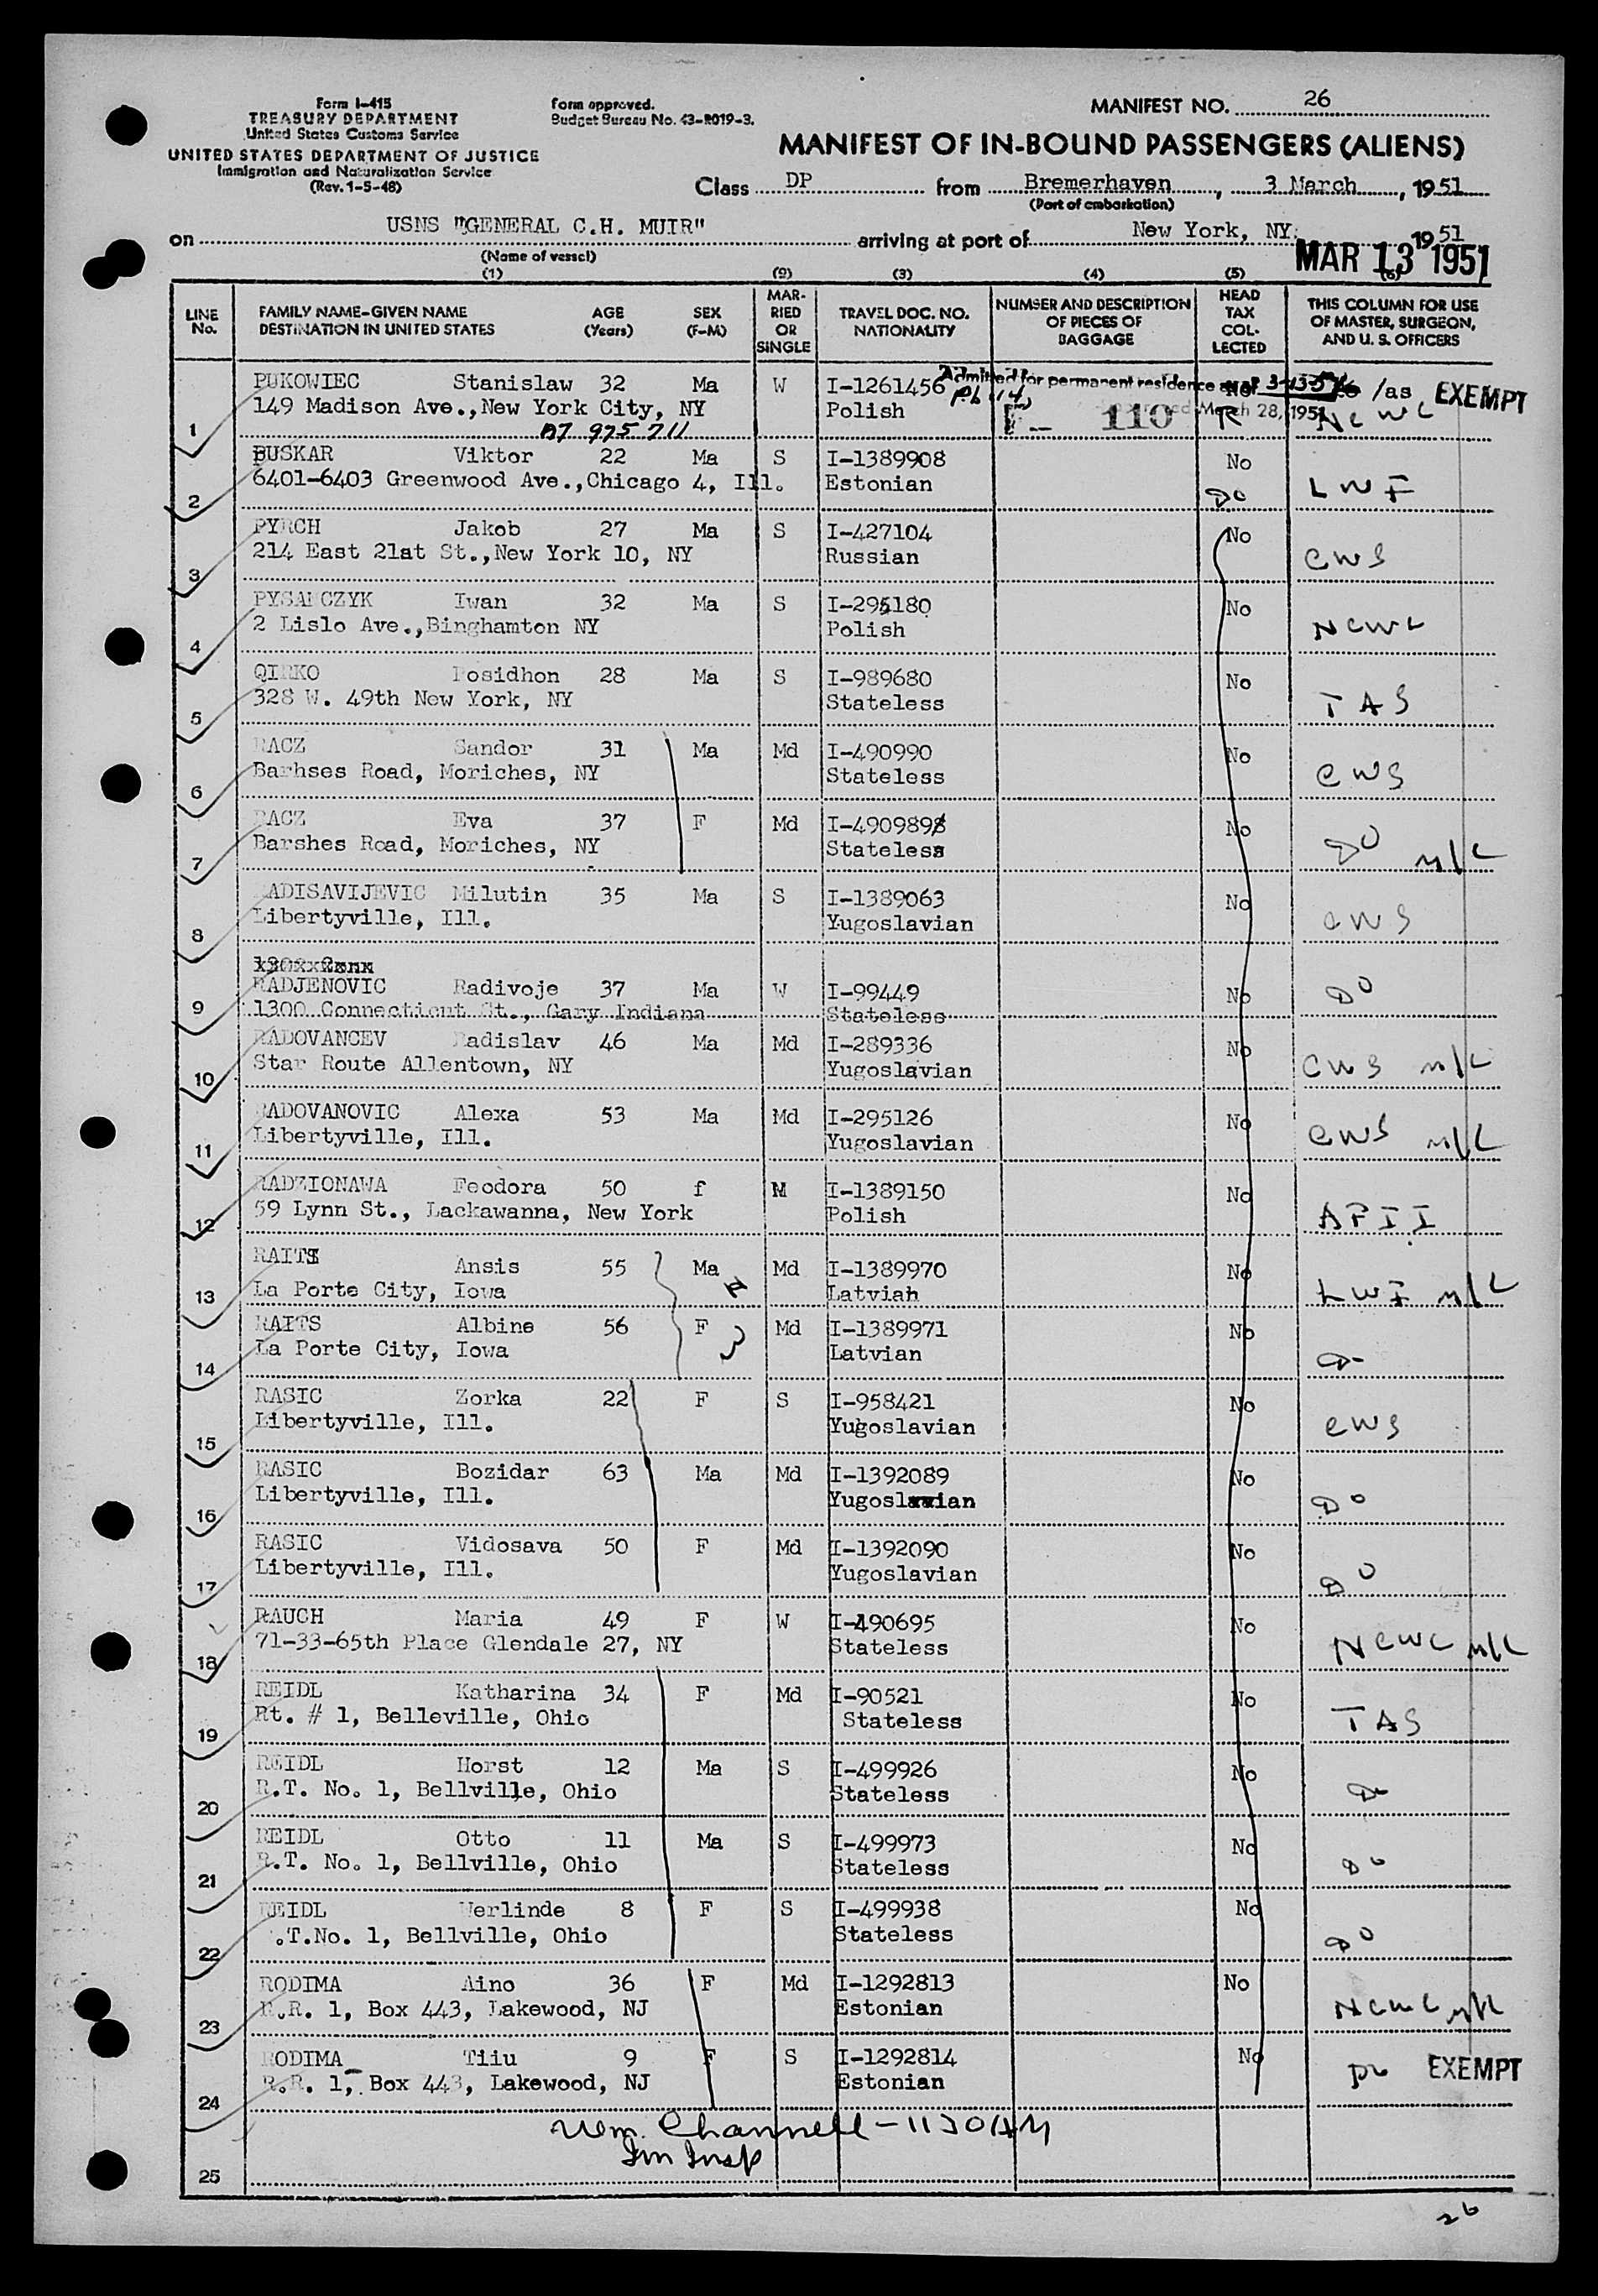 Form I-415
TREASURY DEPARTMENT
United States Customs Service
UNITED STATES DEPARTMENT OF JUSTICE
Immigration and Naturalization Service
(Rev. 1-5-48)
Form approved.
Budget Bureau No. 43-R019-3.
MANIFEST NO. 26
MANIFEST OF IN-BOUND PASSENGERS (ALIENS)
Class DP from Bremerhaven, 3 March, 1951
(Port of embarkation)
on USNS "GENERAL C.H. MUIR" arriving at port of New York, NY. 1951
(Name of vessel)
MAR 13 1951
(1) (2) (3) (4) (5) (6)
LINE No. FAMILY NAME-GIVEN NAME DESTINATION IN UNITED STATES AGE (Years) SEX (F-M) MARRIED OR SINGLE TRAVEL DOC. NO. NATIONALITY NUMBER AND DESCRIPTION OF PIECES OF BAGGAGE HEAD TAX COLLECTED THIS COLUMN FOR USE OF MASTER, SURGEON, AND U. S. OFFICERS
1 PUKOWIEC Stanislaw 32 Ma W I-1261456 Admitted for permanent residence as of 3-13-51 /as EXEMPT
149 Madison Ave., New York City, NY Polish 110 March 28, 1951 R NCWC
A7 975 711
2 PUSKAR Viktor 22 Ma S I-1389908 No
6401-6403 Greenwood Ave., Chicago 4, Ill. Estonian Do LWF
3 PYRCH Jakob 27 Ma S I-427104 No
214 East 21at St., New York 10, NY Russian CWS
4 PYSARCZYK Iwan 32 Ma S I-295180 No
2 Lislo Ave., Binghamton NY Polish NCWC
5 QIRKO Posidhon 28 Ma S I-989680 No
328 W. 49th New York, NY Stateless TAS
6 RACZ Sandor 31 Ma Md I-490990 No
Barhses Road, Moriches, NY Stateless CWS
7 RACZ Eva 37 F Md I-4909898 No
Barshes Road, Moriches, NY Stateless Do M/L
8 RADISAVIJEVIC Milutin 35 Ma S I-1389063 No
Libertyville, Ill. Yugoslavian CWS
9 RADJENOVIC Radivoje 37 Ma W I-99449 No Do
1300 Connecticut St., Gary Indiana Stateless
10 RADOVANCEV Radislav 46 Ma Md I-289336 No
Star Route Allentown, NY Yugoslavian CWS M/L
11 RADOVANOVIC Alexa 53 Ma Md I-295126 No
Libertyville, Ill. Yugoslavian CWS M/L
12 RADZIONAWA Feodora 50 f M I-1389150 No
59 Lynn St., Lackawanna, New York Polish AFII
13 RAITS Ansis 55 Ma Md I-1389970 No
La Porte City, Iowa Latvian LWF M/L
14 RAITS Albine 56 F Md I-1389971 No
La Porte City, Iowa Latvian Do
15 RASIC Zorka 22 F S I-958421 No
Libertyville, Ill. Yugoslavian CWS
16 RASIC Bozidar 63 Ma Md I-1392089 No
Libertyville, Ill. Yugoslavian Do
17 RASIC Vidosava 50 F Md I-1392090 No
Libertyville, Ill. Yugoslavian Do
18 RAUCH Maria 49 F W I-490695 No
71-33-65th Place Glendale 27, NY Stateless NCWC M/L
19 REIDL Katharina 34 F Md I-90521 No
Rt. # 1, Belleville, Ohio Stateless TAS
20 REIDL Horst 12 Ma S I-499926 No
R.T. No. 1, Bellville, Ohio Stateless Do
21 REIDL Otto 11 Ma S I-499973 No
R.T. No. 1, Bellville, Ohio Stateless Do
22 REIDL Werlinde 8 F S I-499938 No
.T.No. 1, Bellville, Ohio Stateless Do
23 RODIMA Aino 36 F Md I-1292813 No
R.R. 1, Box 443, Lakewood, NJ Estonian NCWC M/L
24 RODIMA Tiiu 9 F S I-1292814 No
R.R. 1, Box 443, Lakewood, NJ Estonian Do EXEMPT
Wm. Channell - 1130AM
Im Insp
25
26